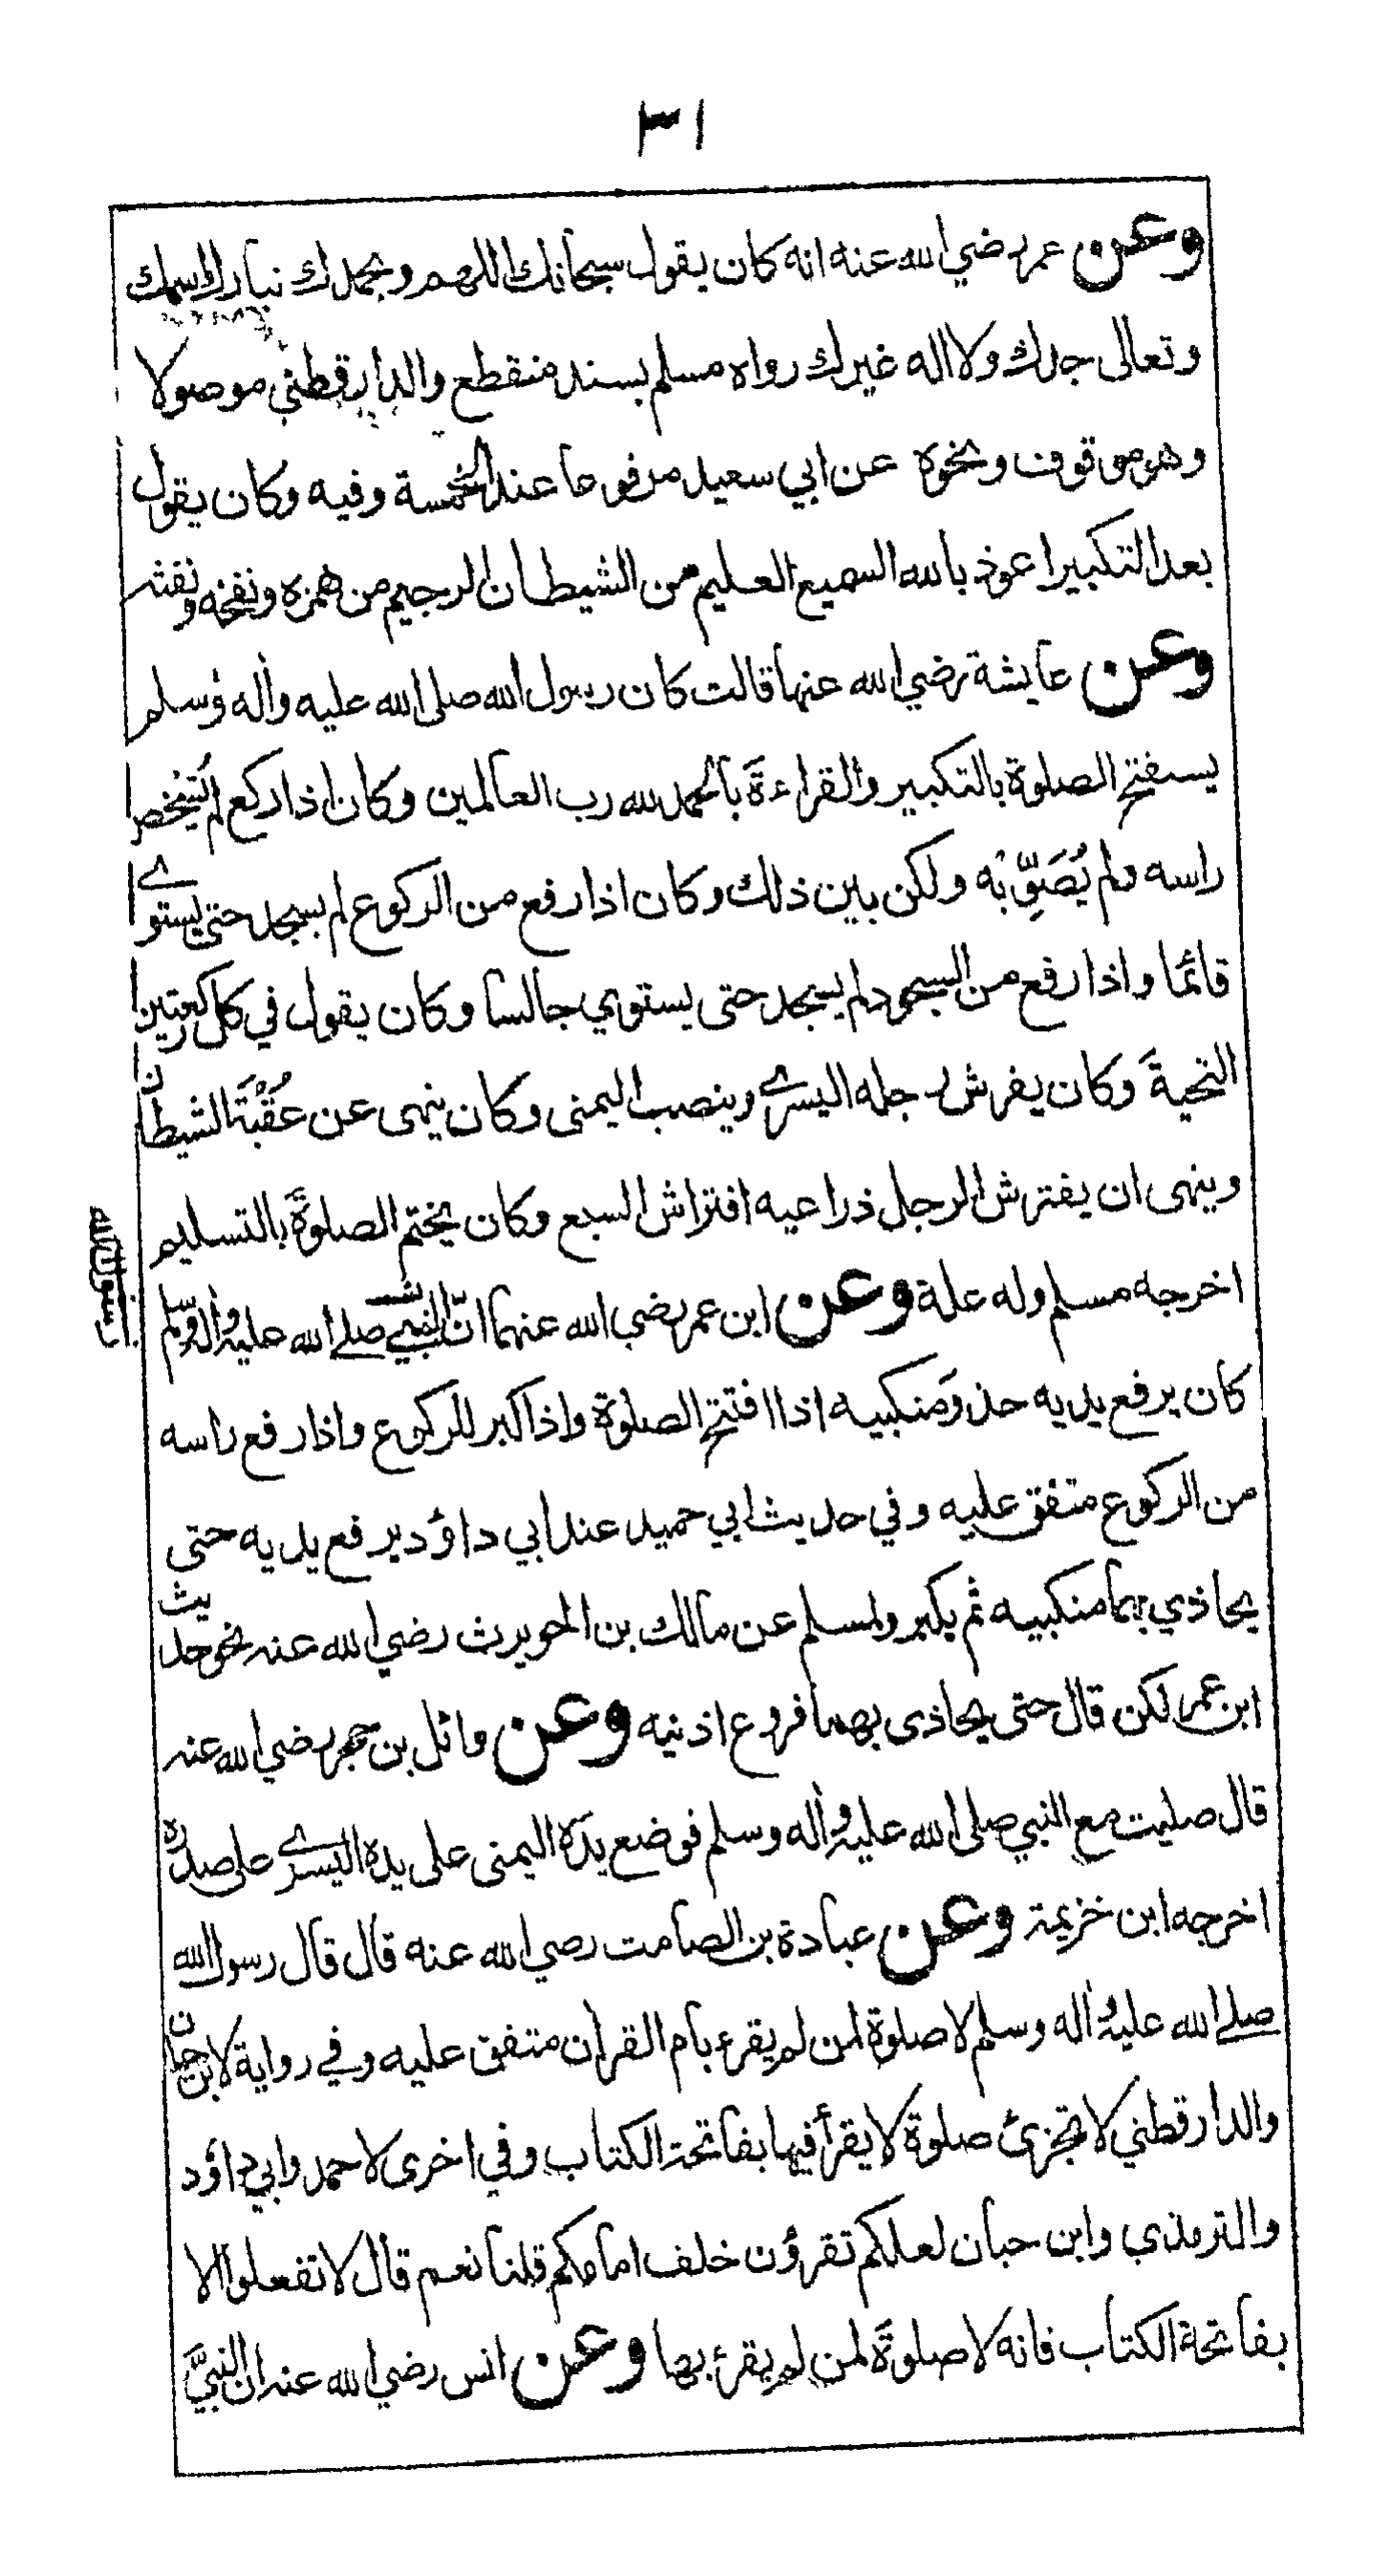 ٣١
وعن عمر رضي الله عنه انه كان يقول سبحانك اللهم وبحمدك تبارك اسمك
وتعالى جدك ولا اله غيرك رواه مسلم بسند منقطع والدارقطني موصولا
وهو موقوف ونحوه عن ابي سعيد مرفوعا عند الخمسة وفيه وكان يقول
بعد التكبير اعوذ بالله السميع العليم من الشيطان الرجيم من همزه ونفخه ونفثه
وعن عايشة رضي الله عنها قالت كان رسول الله صلى الله عليه واٰله وسلم
يستفتح الصلوة بالتكبير والقراءةَ بالحمد لله رب العالمين وكان اذا ركع لم يُشخص
راسه ولم يُصَوِّبْه ولكن بين ذلك وكان اذا رفع من الركوع لم يسجد حتى يستوے
قائما واذا رفع من السجود لم يسجد حتى يستوي جالسا وكان يقول في كل ركعتين
التحيةَ وكان يفرش رجله اليسرے وينصب اليمنى وكان ينهى عن عُقْبَةَ الشيطان
وينهى ان يفترش الرجل ذراعيه افتراش السبع وكان يختم الصلوةَ بالتسليم
اخرجه مسلم وله علة وعن ابن عمر رضي الله عنهما انّ النبي صلے الله عليه واٰله وسلم
رسول الله
كان يرفع يديه حذوَ منكبيه اذا افتتح الصلوة واذا كبر للركوع واذا رفع راسه
من الركوع متفق عليه وفي حديث ابي حميد عند ابي داؤد يرفع يديه حتى
يحاذي بهما منكبيه ثم يكبر ولمسلم عن مالك بن الحويرث رضي الله عنه نحو حديث
ابن عمر لكن قال حتى يحاذى بهما فروع اذنيه وعن وائل بن حجر رضي الله عنه
قال صليت مع النبي صلى الله عليه واٰله وسلم فوضع يده اليمنى على يده اليسرے على صدره
اخرجه ابن خزيمة وعن عبادة بن الصامت رضي الله عنه قال قال رسول الله
صلے الله عليه واٰله وسلم لا صلوة لمن لم يقرء بام القران متفق عليه وفے رواية لابن حبان
والدارقطني لا تجزئ صلوة لا يقرأ فيها بفاتحة الكتاب وفي اخرى لاحمد وابي داؤد
والترمذي وابن حبان لعلكم تقرؤن خلف امامكم قلنا نعم قال لا تفعلوا الا
بفاتحة الكتاب فانه لا صلوةَ لمن لم يقرء بها وعن انس رضي الله عنه ان النبيَّ